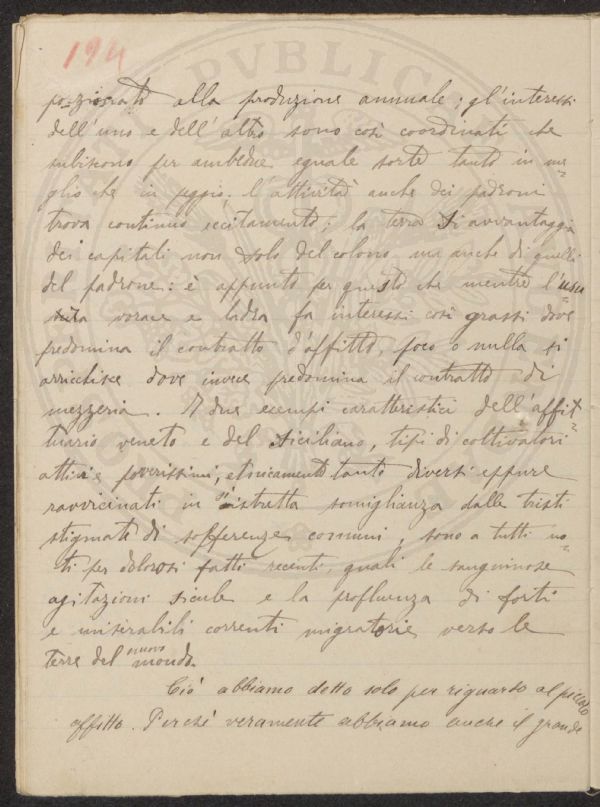 194
porzionato alla produzione annuale; gl'interessi
dell'uno e dell'altro sono così coordinati che
subiscono per ambedue eguale sorte tanto in me=
glio che in peggio. L'attività anche dei padroni
trova continuo eccitamento; la terra si avvantaggia
dei capitali non solo del colono ma anche di quelli
del padrone: è appunto per questo che mentre l'usu
vorace e ladra fa interessi così grassi dove
predomina il contratto d'affitto, poco o nulla si
arricchisce dove invece predomina il contratto di
mezzeria. I due esempi caratteristici dell'affit=
tuario veneto e del siciliano, tipi di coltivatori
attivi e poverissimi, etnicamente tanto diversi eppure
ravvicinati in istretta somiglianza dalle tristi
stigmate di sofferenze comuni, sono a tutti no=
ti per dolorosi fatti recenti, quali le sanguinose
agitazioni sicule e la profluenza di forti
e miserabili correnti migratorie verso le
terre del nuovo mondo.
Ciò abbiamo detto solo per riguardo al piccolo
affitto. Perchè veramente abbiamo anche il grande